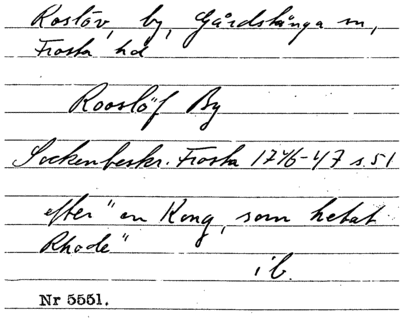 Rostöv, by, Gårdstånga sn,
Frosta hd
Rooslöf By
Sockenbeskr. Frosta 1746-47 s. 51
efter "en Kong, som hetat
Rhode"
ib.
Nr 5551.